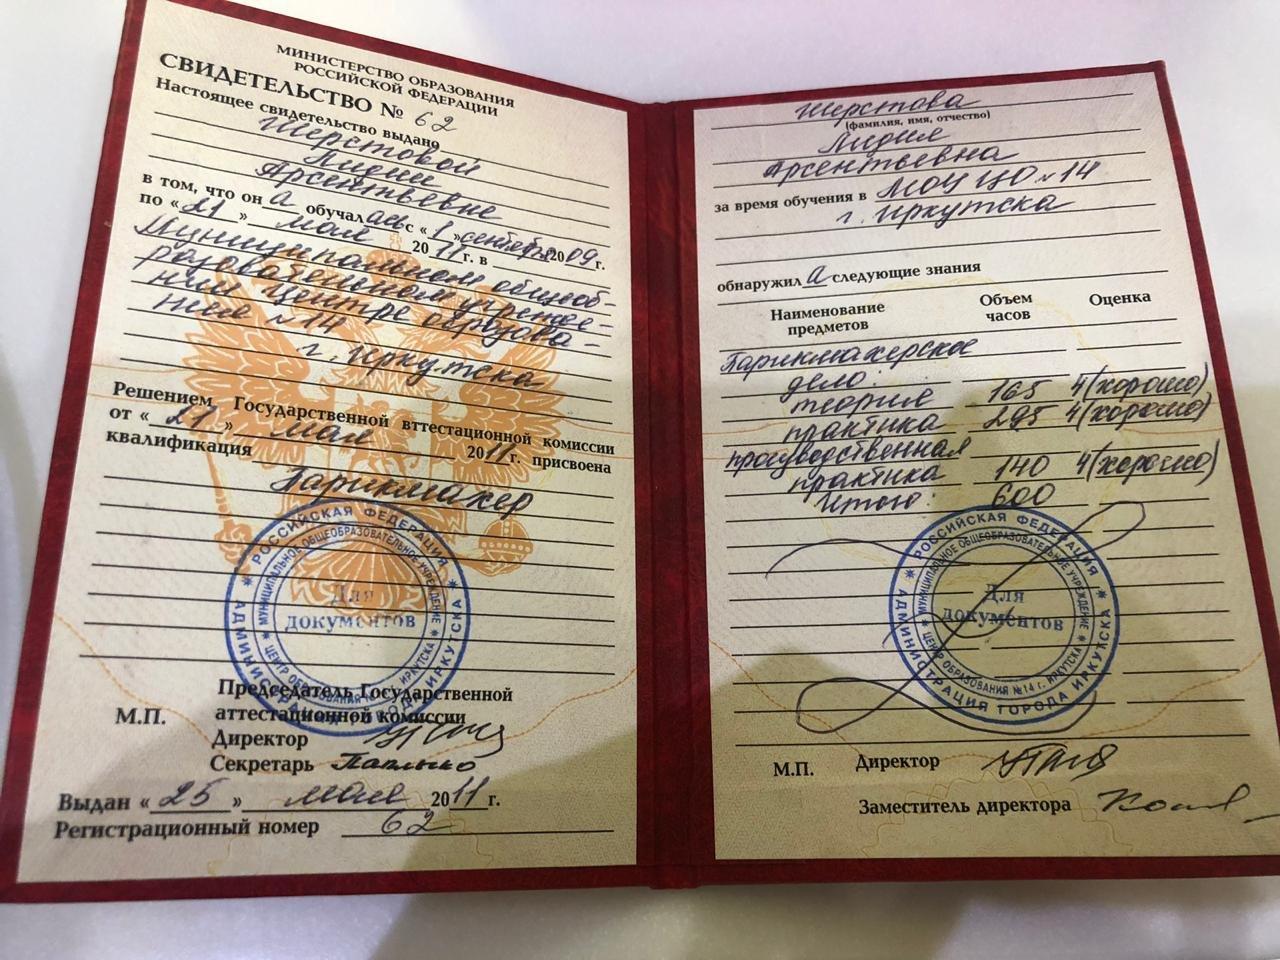 МИНИСТЕРСТВО ОБРАЗОВАНИЯ
РОССИЙСКОЙ ФЕДЕРАЦИИ
СВИДЕТЕЛЬСТВО № 62
Настоящее свидетельство выдано
Шерстовой
Лидии
Арсентьевне
в том, что он а обучалась с « 1 » сентября 2009г.
по « 21 » мая 2011г. в
Муниципальном общеоб-
разовательном учрежде-
нии Центре образова-
ния №14
г. Иркутска
Решением Государственной вттестационной комиссии
от « 21 » мая 2011г. присвоена
квалификация
Парикмахер
РОССИЙСКАЯ ФЕДЕРАЦИЯ * АДМИНИСТРАЦИЯ ГОРОДА ИРКУТСКА *
МУНИЦИПАЛЬНОЕ ОБЩЕОБРАЗОВАТЕЛЬНОЕ УЧРЕЖДЕНИЕ * ЦЕНТР ОБРАЗОВАНИЯ №14 г. ИРКУТСКА *
Для
документов
Председатель Государственной
аттестационной комиссии
М.П.
Директор
Секретарь
Выдан « 25 » мая 2011г.
Регистрационный номер 62
Шерстова
(фамилия, имя, отчество)
Лидия
Арсентьевна
за время обучения в МОУ ЦО №14
г. Иркутска
обнаружил а следующие знания
Наименование предметов Объем часов Оценка
Парикмахерское
дело:
теория 165 4(хорошо)
практика 295 4(хорошо)
производственная
практика 140 4(хорошо)
Итого: 600
РОССИЙСКАЯ ФЕДЕРАЦИЯ * АДМИНИСТРАЦИЯ ГОРОДА ИРКУТСКА *
МУНИЦИПАЛЬНОЕ ОБЩЕОБРАЗОВАТЕЛЬНОЕ УЧРЕЖДЕНИЕ * ЦЕНТР ОБРАЗОВАНИЯ №14 г. ИРКУТСКА *
Для
документов
М.П. Директор
Заместитель директора